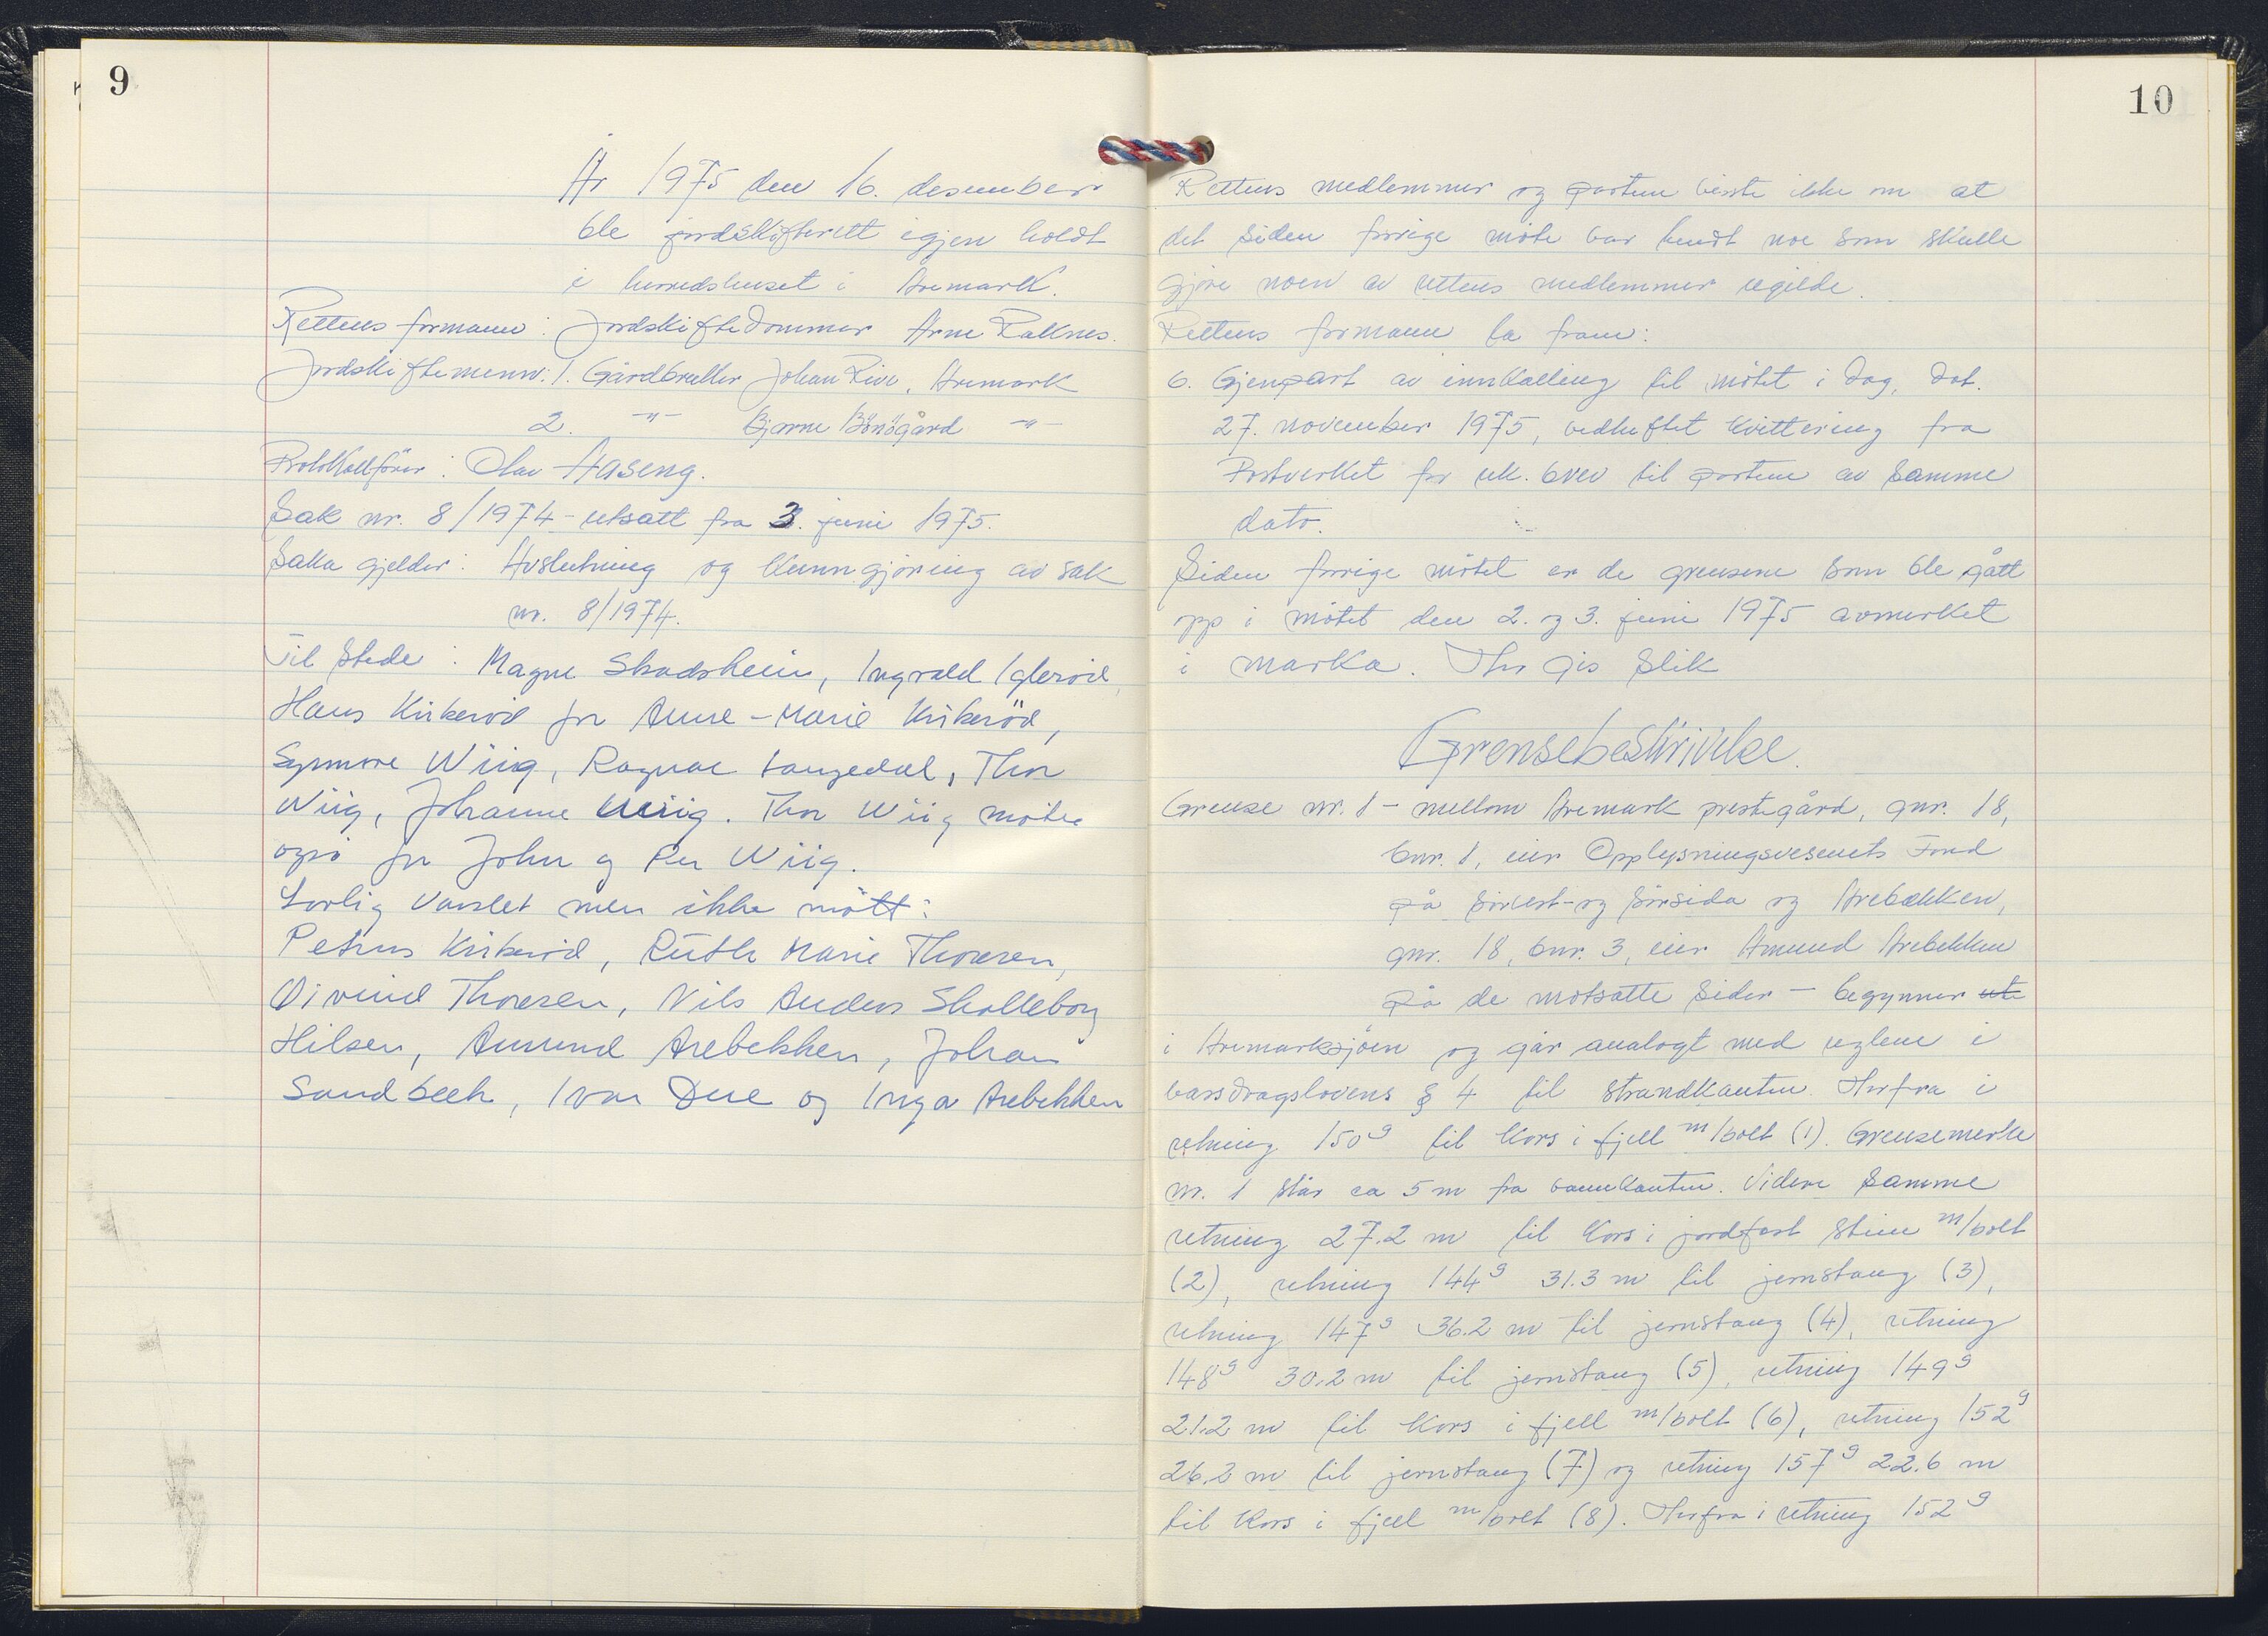 9
År 1975 den 16. desember
ble jordskifterett igjen holdt
i herredshuset i Aremark.
Rettens formann: Jordskiftedommer Arne Raknes.
Jordskiftemenn: 1. Gårdbruker Johan Rive, Aremark
2. -"- Bjarne Bönögård -"-
Protokollförer: Olav Haseng.
Sak nr. 8/1974 - utsatt fra 3. juni 1975.
Saka gjelder: Avslutning og kunngjöring av sak
nr. 8/1974.
Til stede: Magne Skadsheim, Ingvald Igleröd,
Hans Kirkeröd for Anne-Marie Kirkeröd,
Synnöve Wiig, Ragnar Langedal, Thor
Wiig, Johanne Wiig. Thor Wiig møter
også for John og Per Wiig.
Lovlig varslet men ikke mött:
Petrus Kirkeröd, Ruth Marie Thoresen,
Øivind Thoresen, Nils Anders Skolleborg
Hilsen, Amund Arebekken, Johan
Sandbeck, Ivar Due og Inga Arebekken
10
Rettens medlemmer og partene visste ikke om at
det siden forrige möte var hendt noe som skulle
gjöre noen av rettens medlemmer ugilde.
Rettens formann la fram:
6. Gjenpart av innkalling til mötet i dag, dat.
27. november 1975, vedheftet kvittering fra
Postverket for rek. brev til partene av samme
dato.
Siden forrige mötet er de grensene som ble gått
opp i mötet den 2. og 3. juni 1975 avmerket
i marka. Her gis slik
Grensebeskrivelse.
Grense nr. 1 - mellom Aremark prestegård, gnr. 18,
bnr. 1, eier Opplysningsvesenets Fond
på sörvest- og sörsida og Arebekken,
gnr. 18, bnr. 3, eier Amund Arebekken
på de motsatte sider - begynner ute
i Aremarksjöen og går analogt med reglene i
vassdragslovens § 4 til strandkanten. Herfra i
retning 150g til kors i fjell m/bolt (1). Grensemerke
nr. 1 står ca 5 m fra vannkanten. Videre samme
retning 27.2 m til kors i jordfast stein m/bolt
(2), retning 144g 31.3 m til jernstang (3),
retning 147g 36.2 m til jernstang (4), retning
148g 30.2 m til jernstang (5), retning 149g
21.2 m til kors i fjell m/bolt (6), retning 152g
26.2 m til jernstang (7) og retning 157g 22.6 m
til kors i fjell m/bolt (8). Herfra i retning 152g